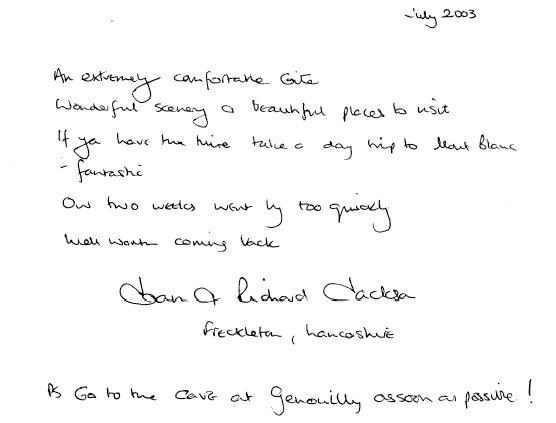 July 2003
An extremely comfortable Gite
Wonderful scenery & beautiful places to visit
If you have the time take a day trip to Mont Blanc
- fantastic
Our two weeks went by too quickly
Well worth coming back
Joan & Richard Jackson
Freckleton, Lancashire
PS Go to the cave at Genouilly as soon as possible!